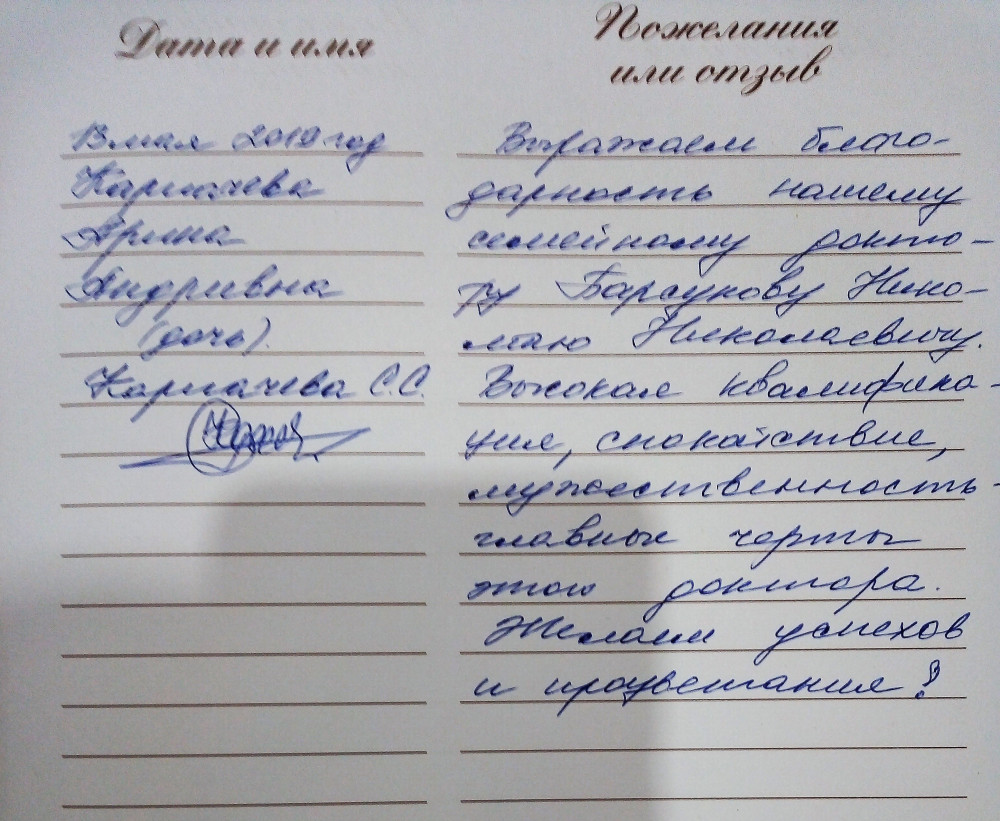 Дата и имя
13 мая 2019 год
Карпачева
Арина
Андривна
(дочь).
Карпачева С.С.
Пожелания
или отзыв
Выражаем благо-
дарность нашему
семейному докто-
ру Барсукову Нико-
лаю Николаевичу.
Высокая квалифика-
ция, спокойствие,
мужественность-
главные черты
этого доктора.
Желаем успехов
и процветания!